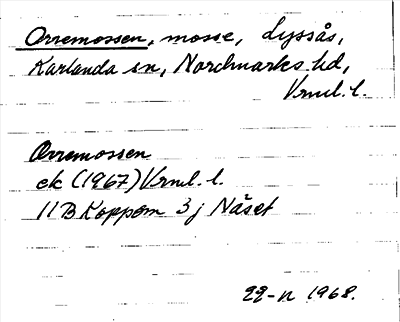 Orremossen, mosse, Lyssås,
Karlanda sn, Nordmarks hd,
Vrml. l.
Orremossen
ek (1967) Vrml. l.
11 B Koppom 3 j Näset
1968.